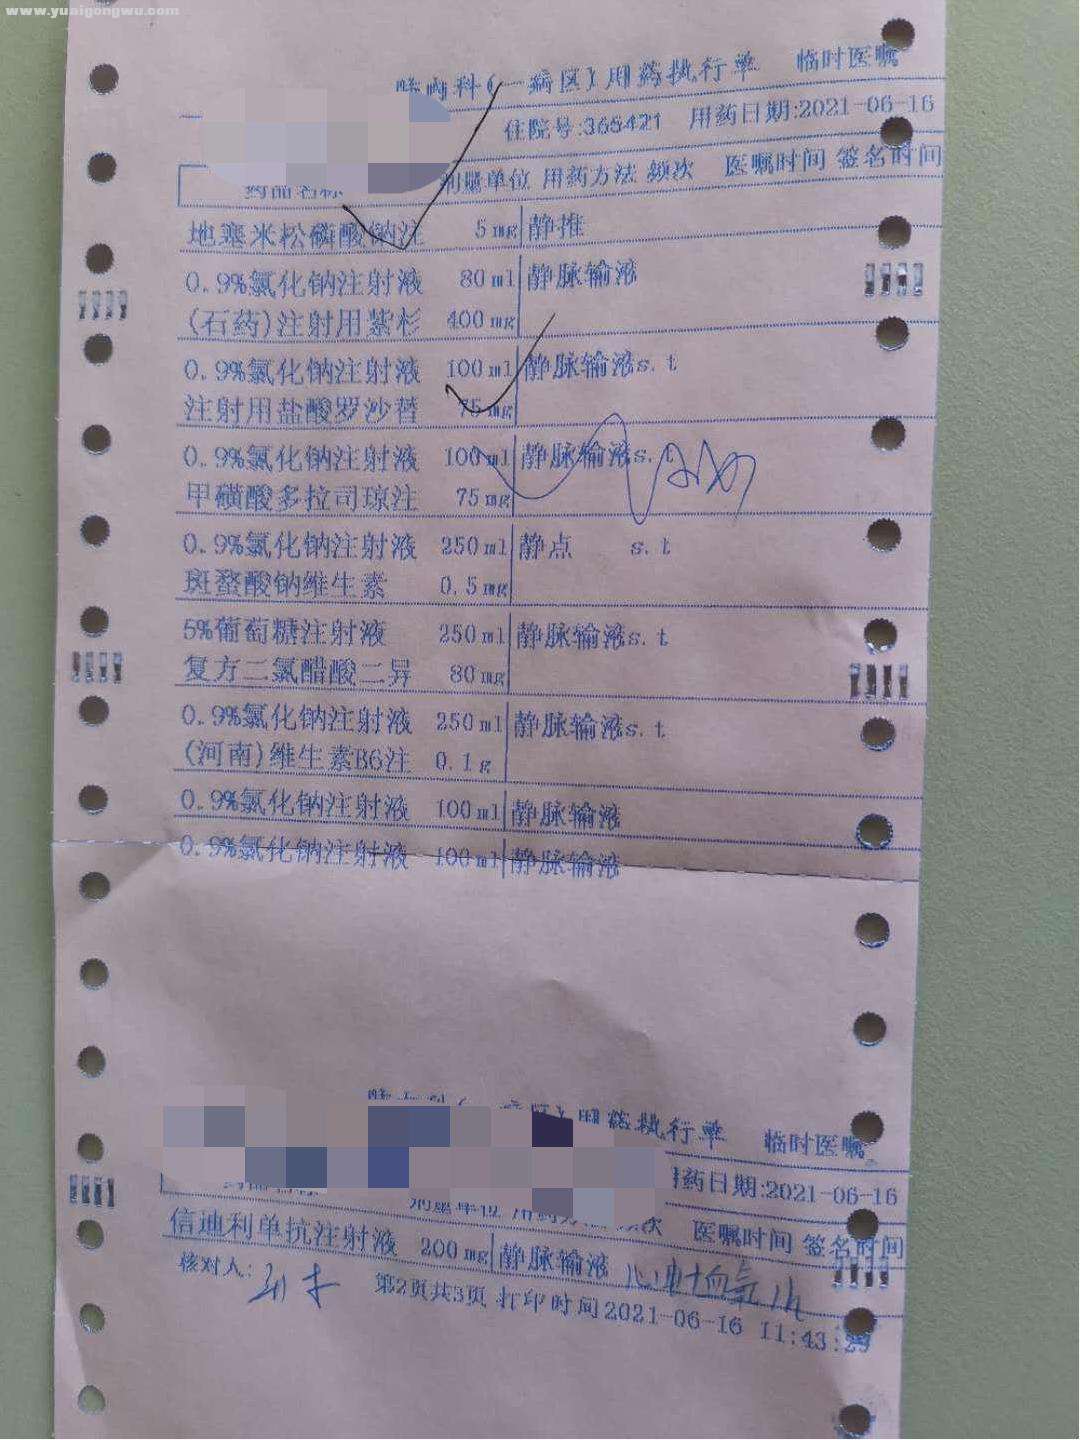 www.yuaigongwu.com
内科(一病区)用药执行单 临时医嘱
住院号:365421 用药日期:2021-06-16
药品名称 剂量单位 用药方法 频次 医嘱时间 签名时间
地塞米松磷酸钠注 5mg 静推
0.9%氯化钠注射液 80ml 静脉输液
(石药)注射用紫杉 400mg
0.9%氯化钠注射液 100ml 静脉输液s.t
注射用盐酸罗沙替 75mg
0.9%氯化钠注射液 100ml 静脉输液s.t
甲磺酸多拉司琼注 75mg
0.9%氯化钠注射液 250ml 静点 s.t
斑蝥酸钠维生素 0.5mg
5%葡萄糖注射液 250ml 静脉输液s.t
复方二氯醋酸二异 80mg
0.9%氯化钠注射液 250ml 静脉输液s.t
(河南)维生素B6注 0.1g
0.9%氯化钠注射液 100ml 静脉输液
0.9%氯化钠注射液 100ml 静脉输液
用药执行单 临时医嘱
用药日期:2021-06-16
药品名称 剂量单位 用药方法 频次 医嘱时间 签名时间
信迪利单抗注射液 200mg 静脉输液
核对人: 第2页共3页 打印时间2021-06-16 11:43:29